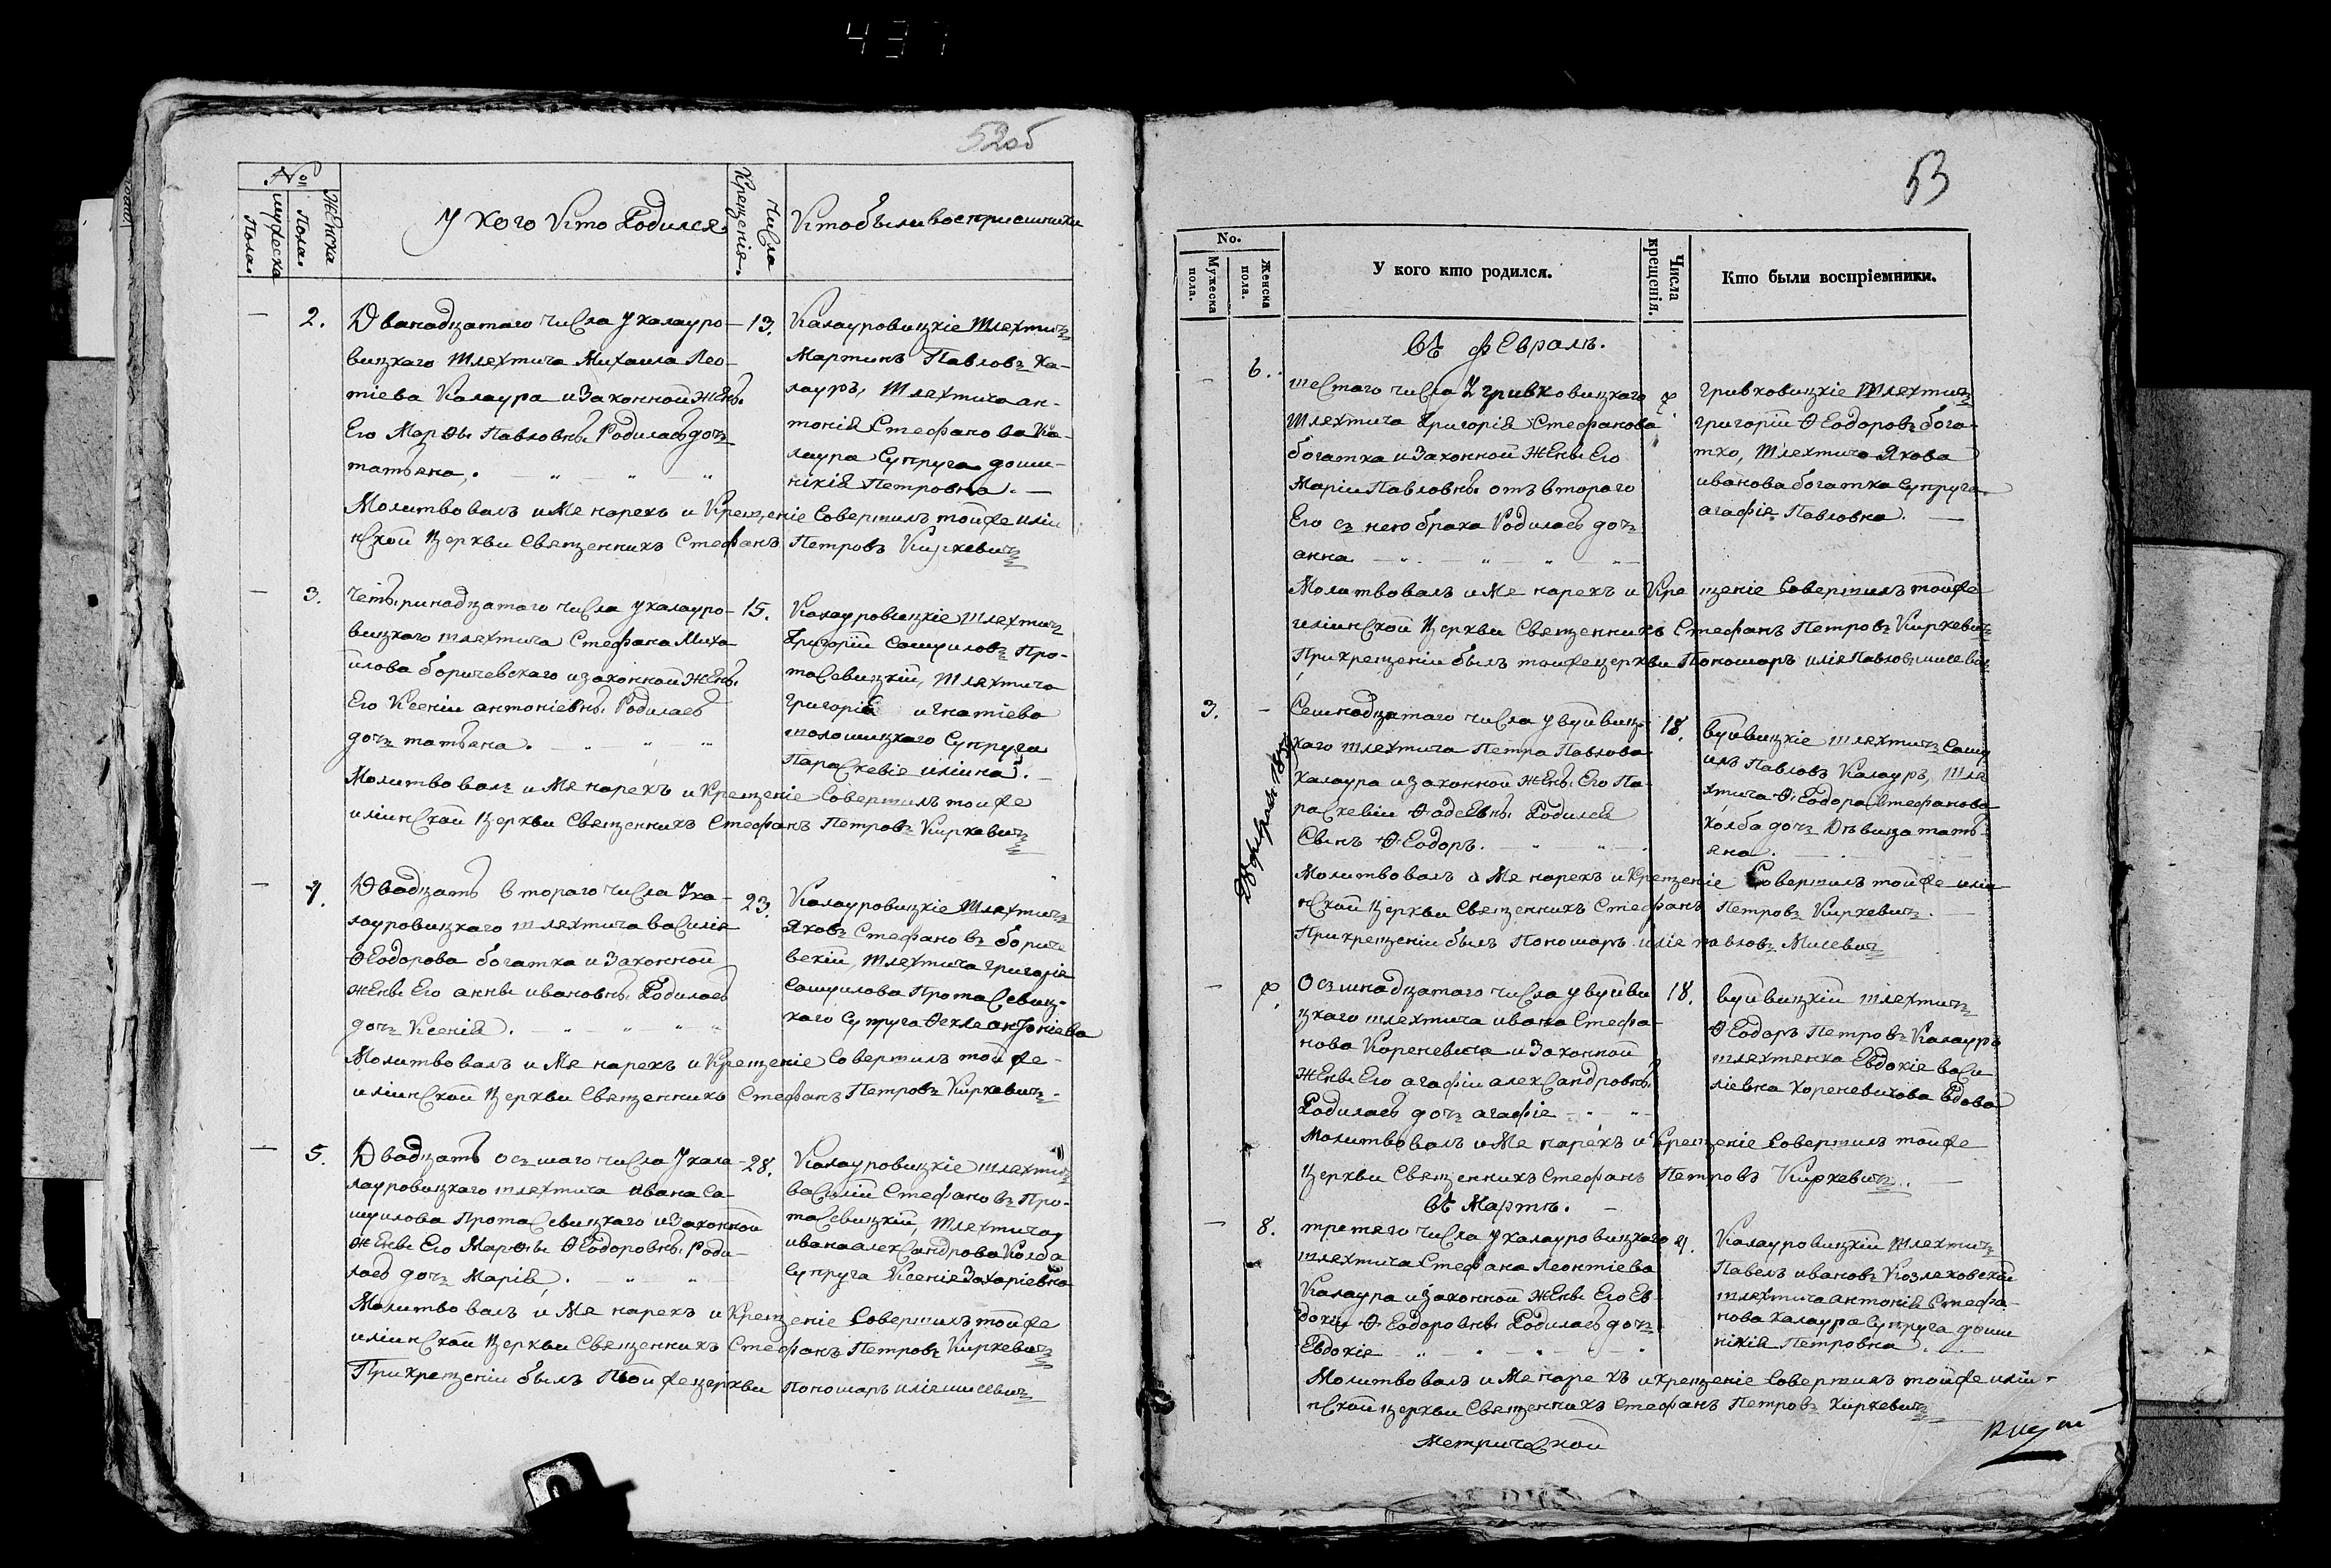 437
52об
№
Мужеска Пола.
Женска Пола.
У кого кто Родился.
Числа Крещенія.
Кто были восприемники
— 2. Дванадцатаго числа у калауро- 13.
вицкаго шляхтича Михаила Лео-
тіева Калаура и Законной жены
Его Марѳы Павловны Родилась дочь
татьяна.
Калауровицкіе шляхтичь
Мартинъ Павловъ Ка-
лауръ, шляхтича ан-
тонія Стефанова Ка-
лаура Супруга доми-
никія Петровна.
Молитвовалъ имя нарекъ и Крещеніе Совершилъ тойже иліи
нской Церкви Священникъ Стефанъ Петровъ Киркевичь
— 3. Четыринадцатаго числа у калауро- 15.
вицкаго шляхтича Стефана Миха
илова боричевскаго и законной жены
Его Ксеніи антоніевны Родилась
дочь татьяна.
Калауровицкіе шляхтичь
Григорій Самуиловъ Про-
тасевицкій, шляхтича
григорія игнатіева
Супруга
Параскевія иліина.
Молитвовалъ имя нарекъ и Крещеніе Совершилъ тойже
иліинской Церкви Священникъ Стефанъ Петровъ Киркевичь
— 4. Двадцать втораго числа у ка- 23.
лауровицкаго шляхтича василія
Ѳеодорова богатка и Законной
жены Его анны ивановны Родилась
дочь Ксенія.
Калауровицкіе шляхтичь
Яковъ Стефановъ бориче
вскій, шляхтича григорія
Самуилова Протасевиц-
каго Супруга Ѳекла
Молитвовалъ имя нарекъ и Крещеніе Совершилъ тойже
иліинской Церкви Священникъ Стефанъ Петровъ Киркевичь.
— 5. Двадцать осьмаго числа у кала- 28.
лауровицкаго шляхтича ивана Са-
муилова Протасевицкаго и Законной
жены Его Марѳы Ѳеодоровны Роди-
лась дочь Марія.
Калауровицкіе шляхтичь
василій Стефановъ Про-
тасевицкій, шляхтича
ивана александрова Колба
Супруга Ксенія Захаріевна
Молитвовалъ имя нарекъ и Крещеніе Совершилъ тойже
иліинской Церкви Священникъ Стефанъ Петровъ Киркевичь
При крещеніи былъ тойже церкви Пономарь илія милевичь
53
No.
Мужеска пола.
Женска пола.
У кого кто родился.
Числа крещенія.
Кто были воспріемники.
въ февралѣ.
— 6. шестаго числа у гривковицкаго 7.
шляхтича Григорія Стефанова
богатка и Законной жены Его
Маріи Павловны отъ втораго
Его съ нею брака Родилась дочь
анна
гривковицкіе шляхтичь
григорій Ѳеодоровъ бога-
тко, шляхтича Якова
иванова богатка Супруга
агафія Павловна.
Молитвовалъ имя нарекъ и Крещеніе Совершилъ тойже
иліинской Церкви Священникъ Стефанъ Петровъ Киркевичь
При крещеніи былъ тойже церкви Пономарь илія Павловъ милевичь
3. — Семнадцатаго числа у вуйвиц- 18.
каго шляхтича Петра Павлова
Калаура и законной жены Его Па-
раскевіи Ѳадеевны Родился
Сынъ Ѳеодоръ.
вуйвицкіе шляхтичь Саму
илъ Павловъ Калауръ, шля
хтича Ѳеодора Стефанова
колба дочь Дѣвица тать-
яна.
Молитвовалъ имя нарекъ и Крещеніе Совершилъ тойже иліи
нской Церкви Священникъ Стефанъ Петровъ Киркевичь.
При крещеніи былъ Пономарь илія павловъ Милевичь
— 7. Осьмнадцатаго числа у вуйви 18.
цкаго шляхтича ивана Стефа-
нова Кореневича и Законной
жены Его агафіи александровны
Родилась дочь агафія
вуйвицкій шляхтичь
Ѳеодоръ Петровъ Калауръ
шляхтянка Евдокія васи
ліевна Кореневичова вдова
Молитвовалъ имя нарекъ и Крещеніе Совершилъ тойже
Церкви Священникъ Стефанъ Петровъ Киркевичь.
въ Мартѣ.
— 8. третяго числа у калауровицкаго 4.
шляхтича Стефана Леонтіева
Калаура и законной жены Его Ев-
докіи Ѳеодоровны Родилась дочь
Евдокія
Калауровицкій шляхтичь
Павелъ ивановъ Козляковскій
шляхтича антонія Стефа-
нова Калаура Супруга доми
никія Петровна.
Молитвовалъ имя нарекъ и крещеніе Совершилъ тойже иліи-
нской церкви Священникъ Стефанъ Петровъ Киркевичь
Метрической